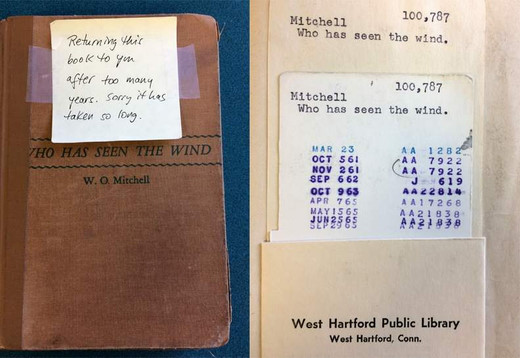 Returning this
book to you
after too many
years. Sorry it has
taken so long.
WHO HAS SEEN THE WIND
W. O. Mitchell
Mitchell 100,787
Who has seen the wind.
100,787
Mitchell
Who has seen the wind.
MAR 23 AA 1282
OCT 561 AA 7922
NOV 261 AA 7922
SEP 662 J 619
OCT 963 AA22814
APR 765 AA17268
MAY1565 AA21838
JUN2565 AA21838
SEP2965
West Hartford Public Library
West Hartford, Conn.